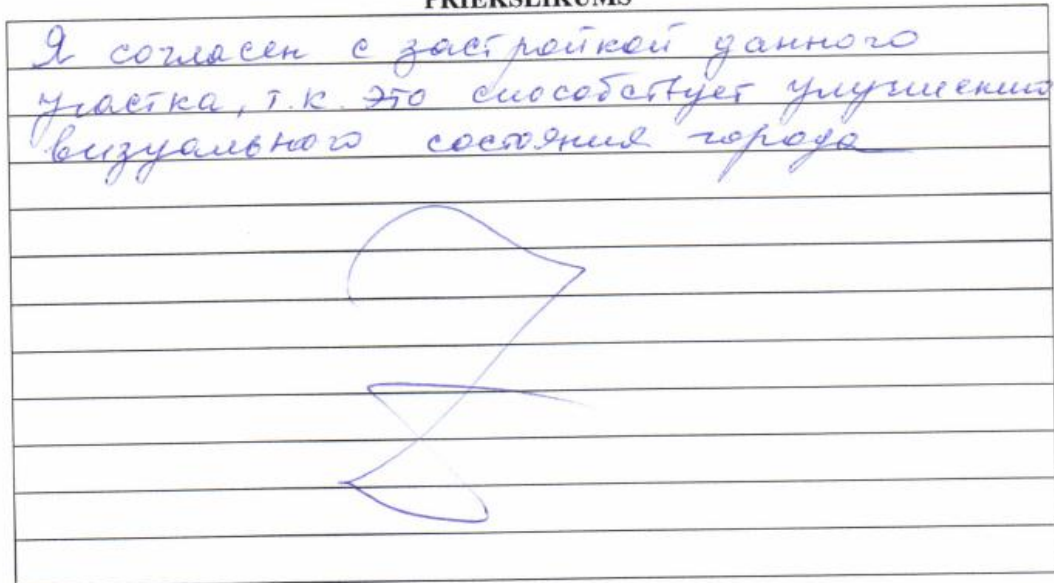 PRIEKŠLIKUMS
Я согласен с застройкой данного
участка, т.к. это способствует улучшению
визуального состояния города